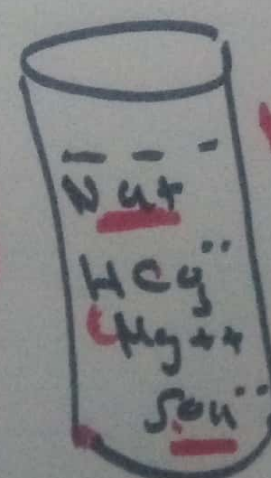 Na+
HCO₃¨
Mg++
SO₄¨